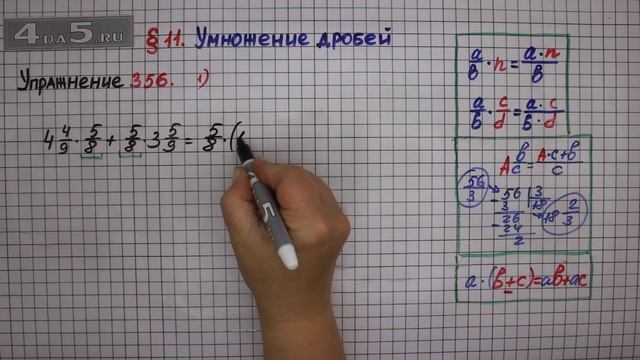 4DA5.RU
§ 11. Умножение дробей
Упражнение 356. 1)
4 4/9 · 5/8 + 5/8 · 3 5/9 = 5/8 · (
a/b · n = a·n/b
a/b · c/d = a·c/b·d
A b/c = A·c+b/c
56/3
56 | 3
- 3 | 18
26 → 18 2/3
- 24
2
a · (b+c)=ab+ac